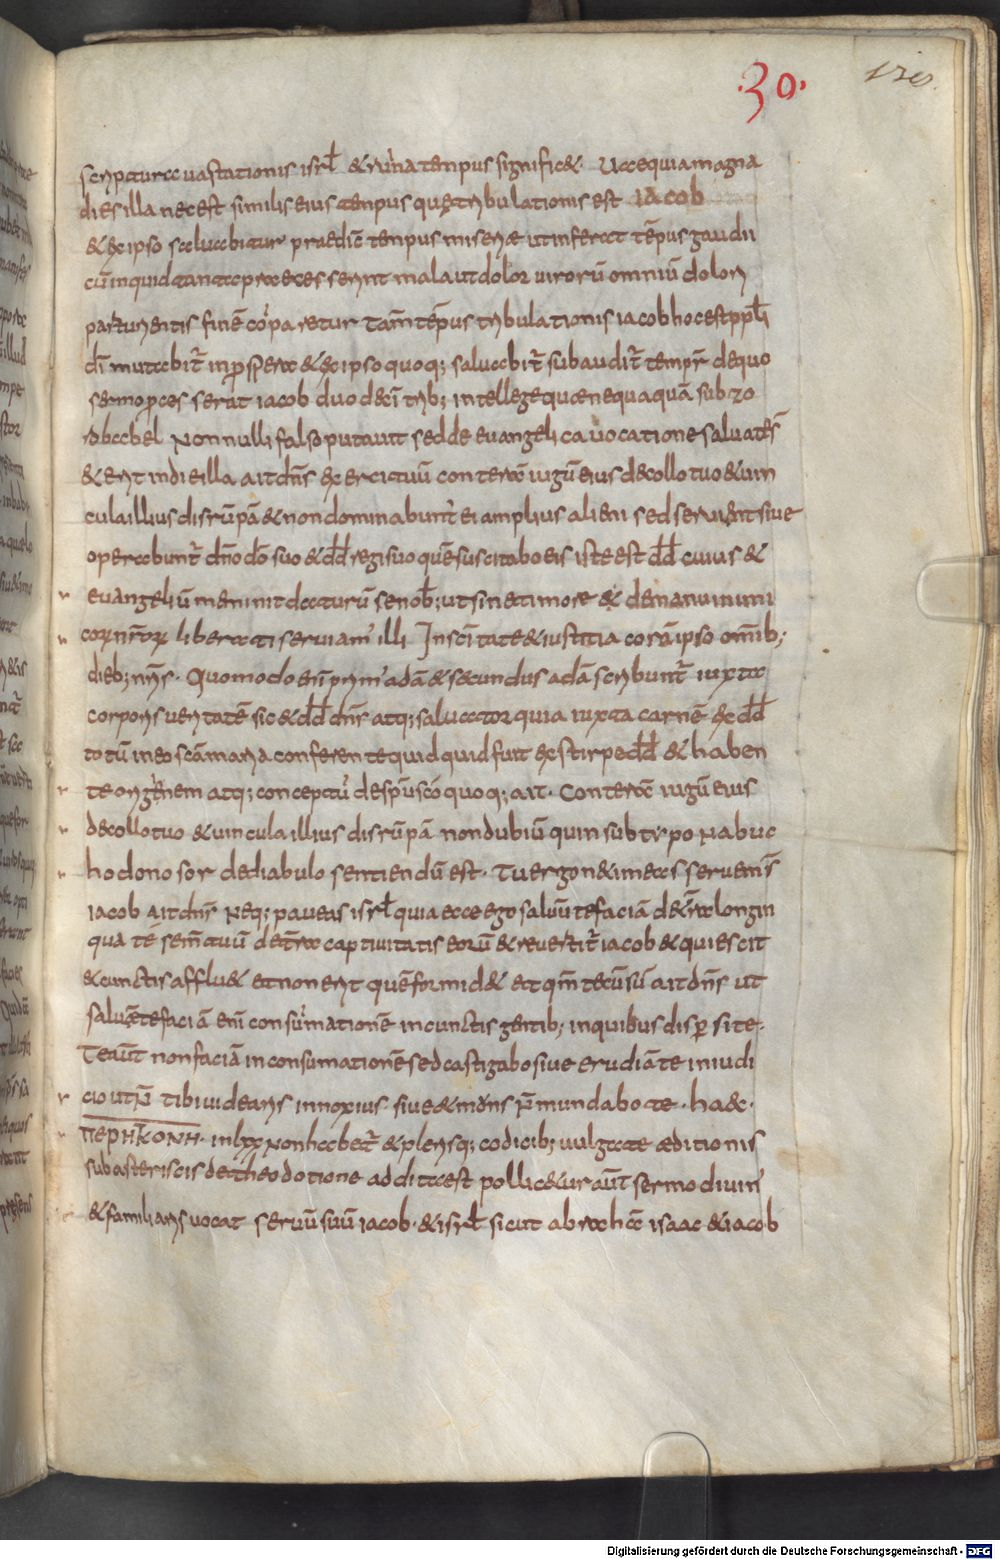 ·30·
scripturae uastationis isrł & ruina tempus signific&· Uae quia magna
dies illa nec est similis eius tempus quę tribulationis est iacob
& ex ipso saluabitur praedic̄ tempus miseriae ut inferat tēpus gaudii
cū inquid tanta praecesserint mala ut dolor uirorū omniū dolori
parturientis finē cōparetur Tam̄ tēpus tribulationis iacob hoc est ppłi
dī mutabit̄ in p̄spera & ex ipso quoq; saluabit̄ subaudit̄ tempr̄ de quo
sermo p̄cesserat iacob duodecī trib; intellege quae nequaquā sub zo
robabel Nonnulli falso putauit sed de euangelica uocatione saluate s̄
& erit in die illa ait dn̄s exercituū conterā iugū eius de collo tuo & uin
cula illius disrūpā & non dominabunt̄ ei amplius alieni sed seruient siue
operabunt̄ dn̄o dō suo & dd̄ regi suo quē suscitabo eis iste est dd̄ cuius &
euangeliū meminit daturū se nob; ut sine timore & de manu inimi
corū nr̄orū liberati seruiam' illi In scītate & iustitia corā ipso om̄ib;
dieb; nr̄is· Quomodo enī prim' adā & secundus adā scribunt̄ iuxta
corporis ueritatē sic & dd̄ dn̄s atq; saluator quia iuxta carnē ex dd̄
totū in eo scā maria conferente quidquid fuit ex stirpe dd̄ & haben
te originem atq; conceptū de sp̄u scō quoq; ait· Conterā iugū eius
de collo tuo & uincula illius disrūpā non dubiū quin sub typo Nabuc
hodonosor de diabulo sentiendū est· Tu ergo ne timeas serue m̄s
iacob Ait dn̄s Neq; paueas isrł quia ecce ego saluū te faciā de t̄ra longin
qua te sem̄ tuū de t̄ra captiuitatis eorū & reuertit̄ iacob & quiescit
& cunctis afflu& et non erit quē formid& et qm̄ tecū sū ait dn̄s ut
saluū te faciā enī consūmationē in cunctis gentib; in quibus disp̄si te·
Te aūt non faciā in consumationē sed castigabo siue erudiā te in iudi
cio ut n̄ tibi uidearis innoxius siue & mūndans n̄ mundabo te· haec·
ΠΕΡΗΚΟΠΗ· in lxx Non habet̄ & plerisq; codicib; uulgatae aeditionis
sub asteriscis de theodotione addita est pollic&ur aūt sermo diuin'
& familiaris uocat seruū suū iacob· & isrł sicut abrahā isaac & iacob
Digitalisierung gefördert durch die Deutsche Forschungsgemeinschaft - DFG